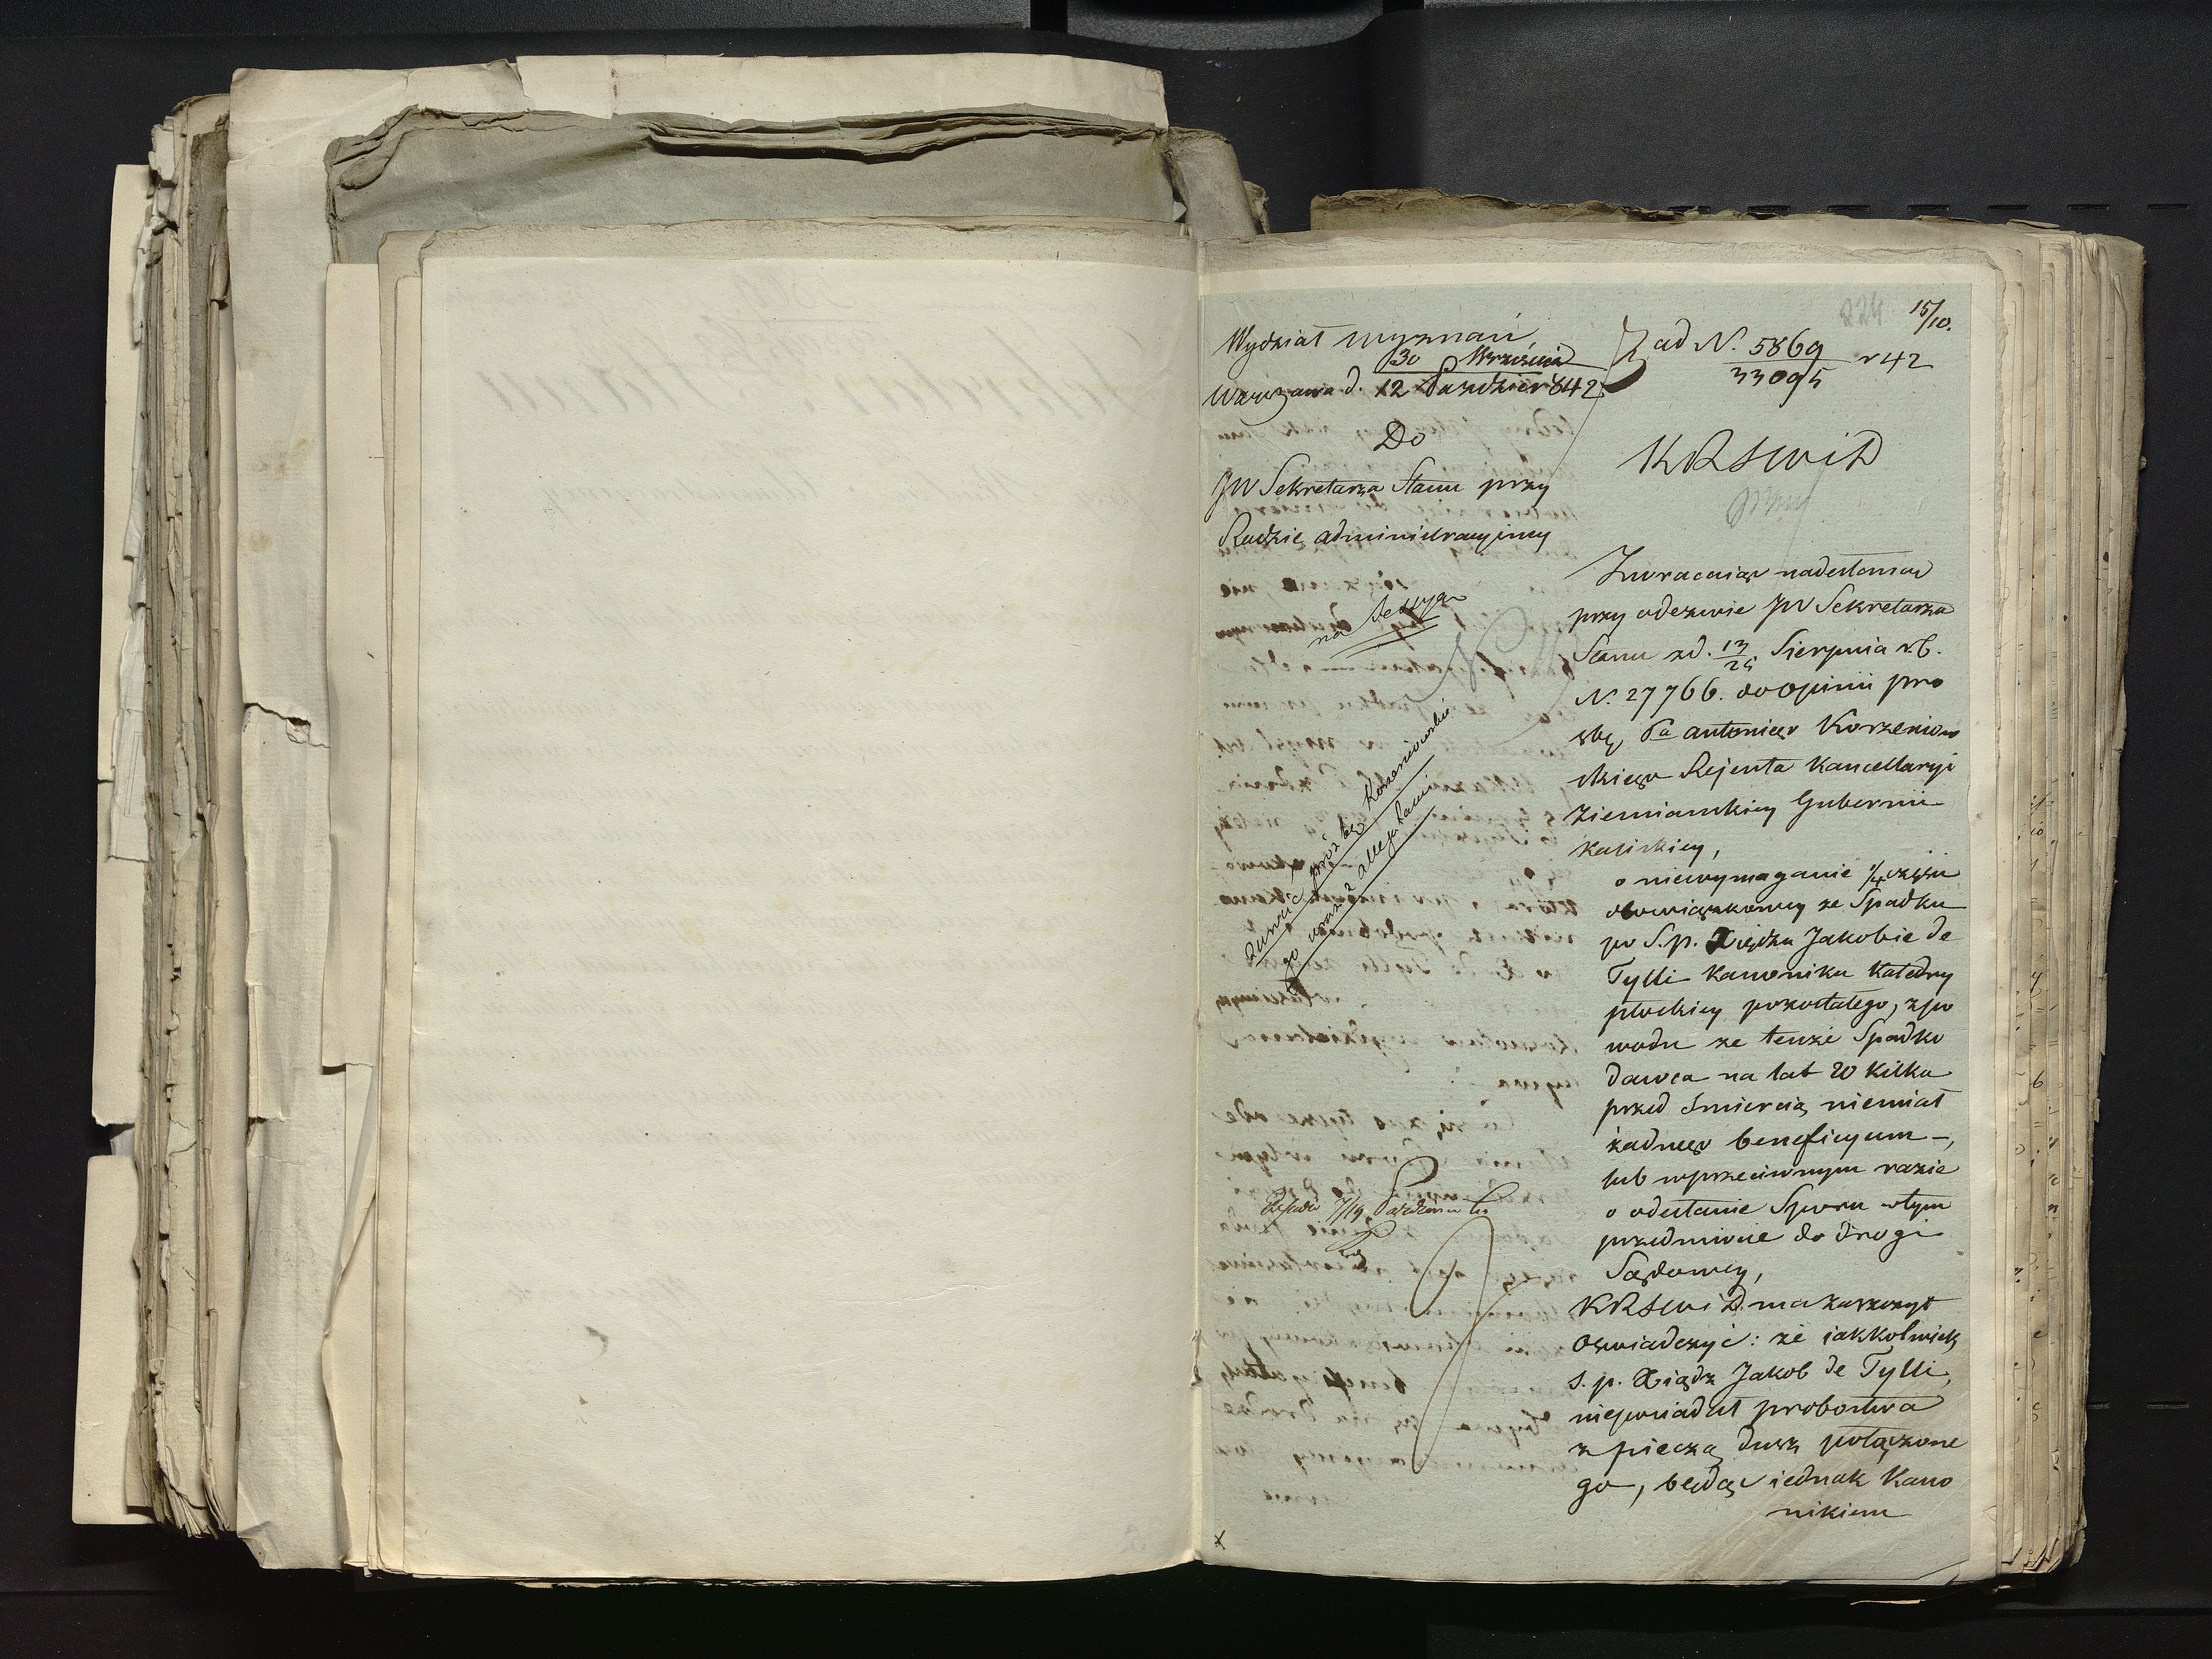 224
15/10.
Wydział wyznań,
30 Września
Warszawa d. 12 Paździer 842
Do
JW Sekretarza Stanu przy
Radzie administracyjney
na Sessyą
zwróć proźbę Korzeniowskie
go wraz z allegatami
7/19 Października
ad N. 5869 r 42
33095
KRSWiD
Zwracaiąc nadesłaną
przy odezwie JW Sekretarza
Stanu z d. 13/25 Sierpnia r.b.
N. 27766. do opinii pro
śbę Pa antoniego Korzeniow
skiego Rejenta Kancellaryi
Ziemiańskiey Gubernii
Kaliskiey,
o niewymaganie 1/4 części
obowiązkowey ze Spadku
po S.p. Xiędzu Jakobie de
Tylli Kanoniku Katedry
płockiey pozostałego, z po
wodu że tenże Spadko
dawca na lat 20 kilka
przed śmiercią niemiał
żadnego beneficyum –,
lub w przeciwnym razie
o odesłanie Sporu w tym
przedmiocie do drogi
Sądowey,
KRSWiD. ma zaszczyt
oświadczyć: że iakkolwiek
s. p. Xiądz Jakob de Tylli,
nieposiadał probostwa
z pieczą dusz połączone
go, będąc iednak Kano
nikiem
x